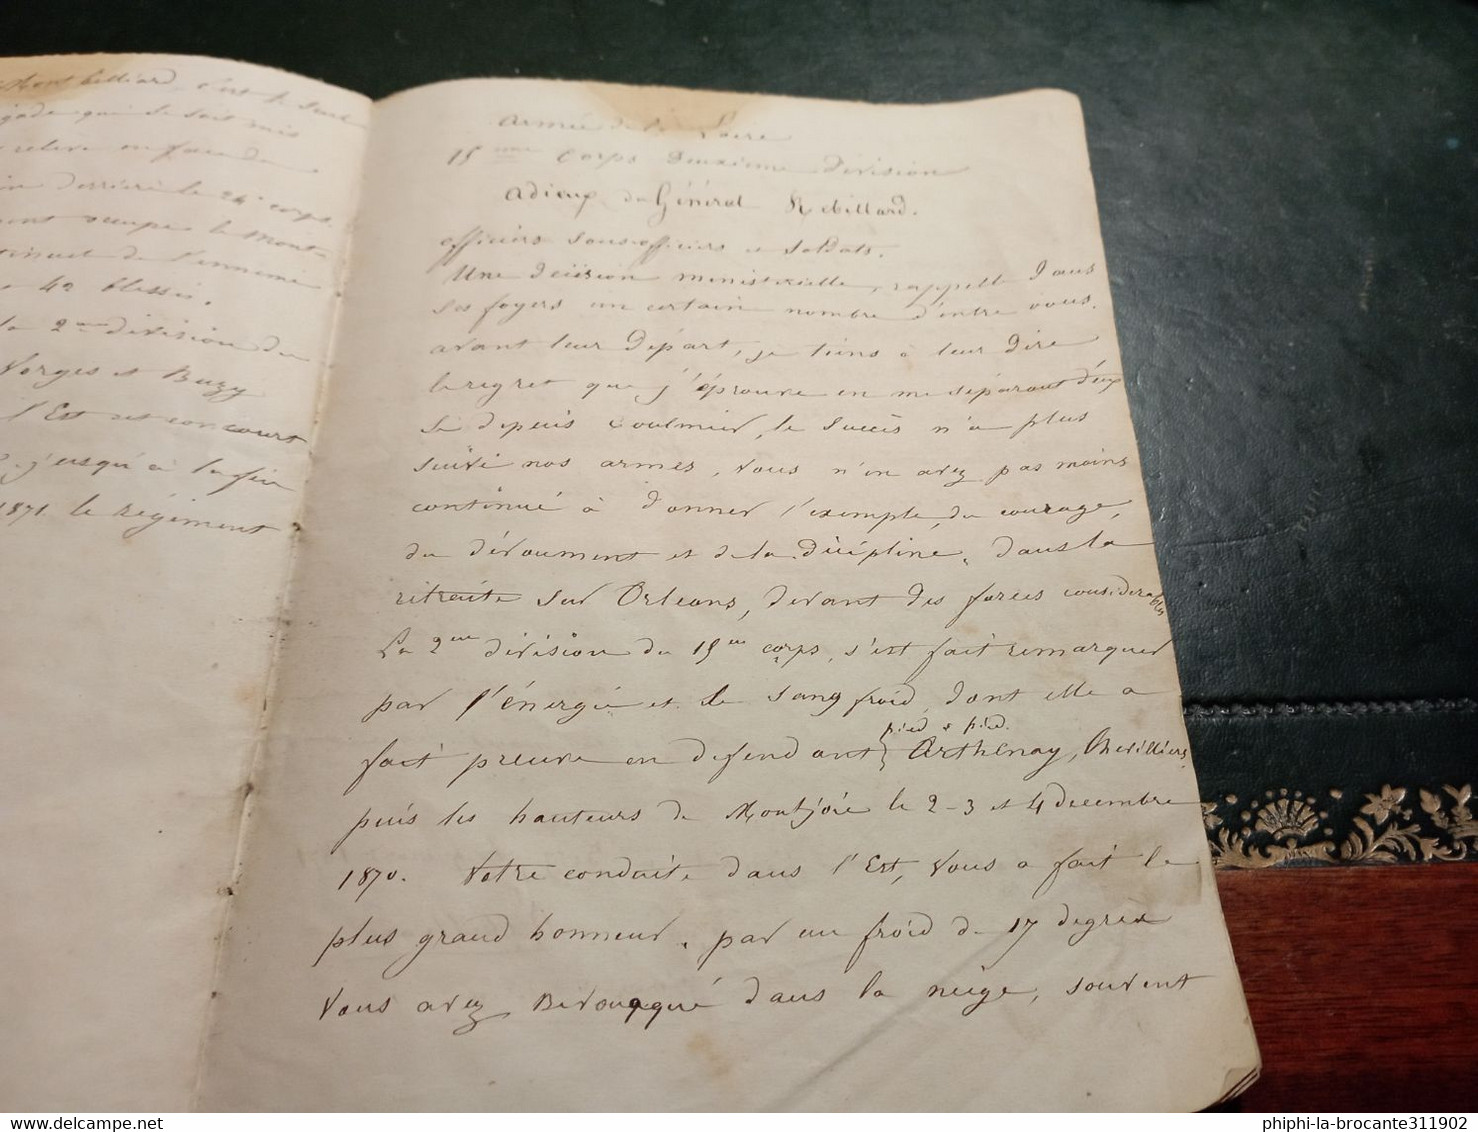 Montbelliard, c'est le seul
qui se soit mis
derrière le 24e corps.
occupé le Mont-
continuel de l'ennemi
42 blessés.
la 2me division du
Vorges et Buzy
l'Est est concourt
jusqu'à la fin
1871. le régiment
Armée de la Loire
15me Corps Deuxième Division
Adieux du Général Rebillard.
officiers sous-officiers et soldats.
Une décision ministérielle, rappelle dans
ses foyers un certain nombre d'entre vous.
avant leur départ, je tiens à leur dire
le regret que j'éprouve en me séparant d'eux
Si depuis Coulmier, le succès n'a plus
suivi nos armes, vous n'en avez pas moins
continué à donner l'exemple, du courage,
du dévoument et de la dicipline, dans la
retraite sur Orléans, devant des forces considerables
La 2me division du 15me corps, s'est fait remarquer
par l'énergie et le sang froid, dont elle a
fait preuve en defendant pied à pied. Arthenay, Chevilliers,
puis les hauteurs de Montjoie le 2-3 et 4 decembre
1870. Votre conduite dans l'Est, vous a fait le
plus grand honneur, par un froid de 17 degrés
vous avez Bivouaqué dans la neige, souvent
phiphi-la-brocante311902